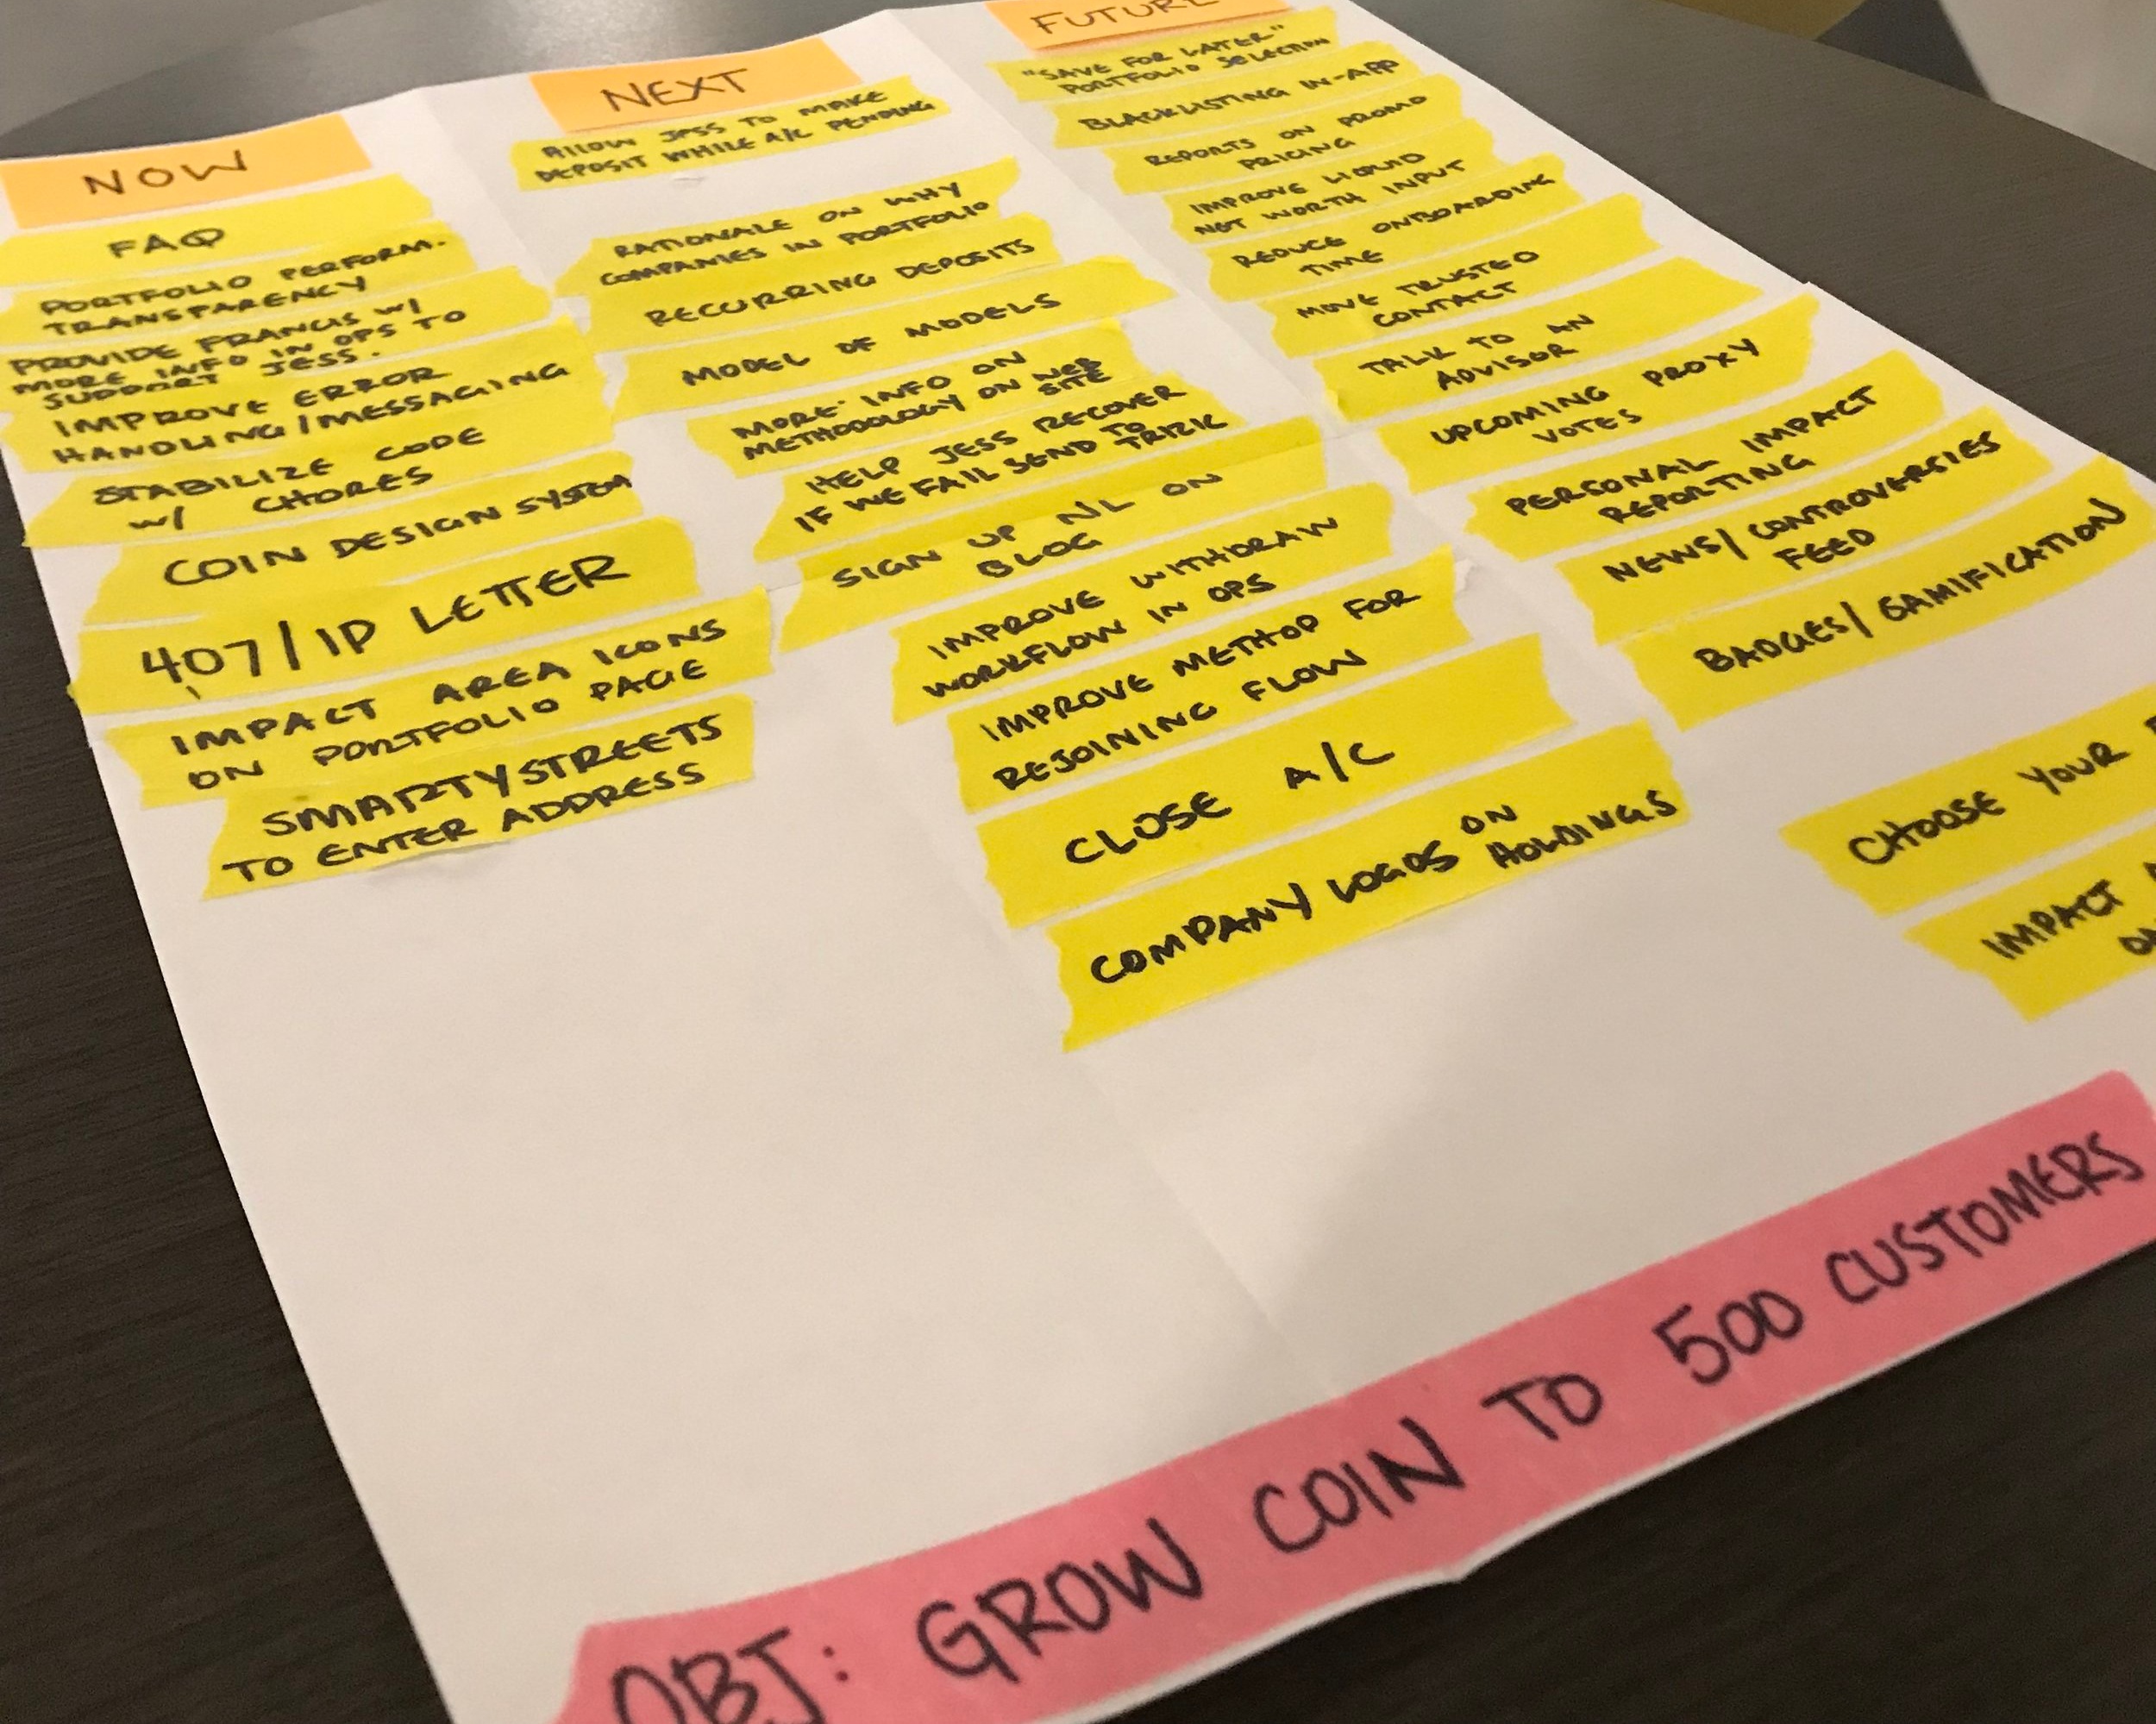 NOW
FAQ
PORTFOLIO PERFORM.
TRANSPARENCY
PROVIDE FRANCIS W/
MORE INFO IN OPS TO
SUPPORT JESS.
IMPROVE ERROR
HANDLING/MESSAGING
STABILIZE CODE
W/ CHORES
COIN DESIGN SYSTEM
407/IP LETTER
IMPACT AREA ICONS
ON PORTFOLIO PAGE
SMARTYSTREETS
TO ENTER ADDRESS
NEXT
ALLOW JESS TO MAKE
DEPOSIT WHILE A/C PENDING
RATIONALE ON WHY
COMPANIES IN PORTFOLIO
RECURRING DEPOSITS
MODEL OF MODELS
MORE INFO ON
METHODOLOGY ON WEB
SITE
HELP JESS RECOVER
IF WE FAIL SEND TO
TRIZIC
SIGN UP N/L ON
BLOG
IMPROVE WITHDRAW
WORKFLOW IN OPS
IMPROVE METHOD FOR
REJOINING FLOW
CLOSE A/C
COMPANY LOGOS ON
HOLDINGS
FUTURE
"SAVE FOR LATER"
PORTFOLIO SELECTION
BLACKLISTING IN-APP
REPORTS ON PROMO
PRICING
IMPROVE LIQUID
NET WORTH INPUT
REDUCE ONBOARDING
TIME
MOVE TRUSTED
CONTACT
TALK TO AN
ADVISOR
UPCOMING PROXY
VOTES
PERSONAL IMPACT
REPORTING
NEWS/CONTROVERSIES
FEED
BADGES/GAMIFICATION
CHOOSE YOUR
IMPACT
OBJ: GROW COIN TO 500 CUSTOMERS